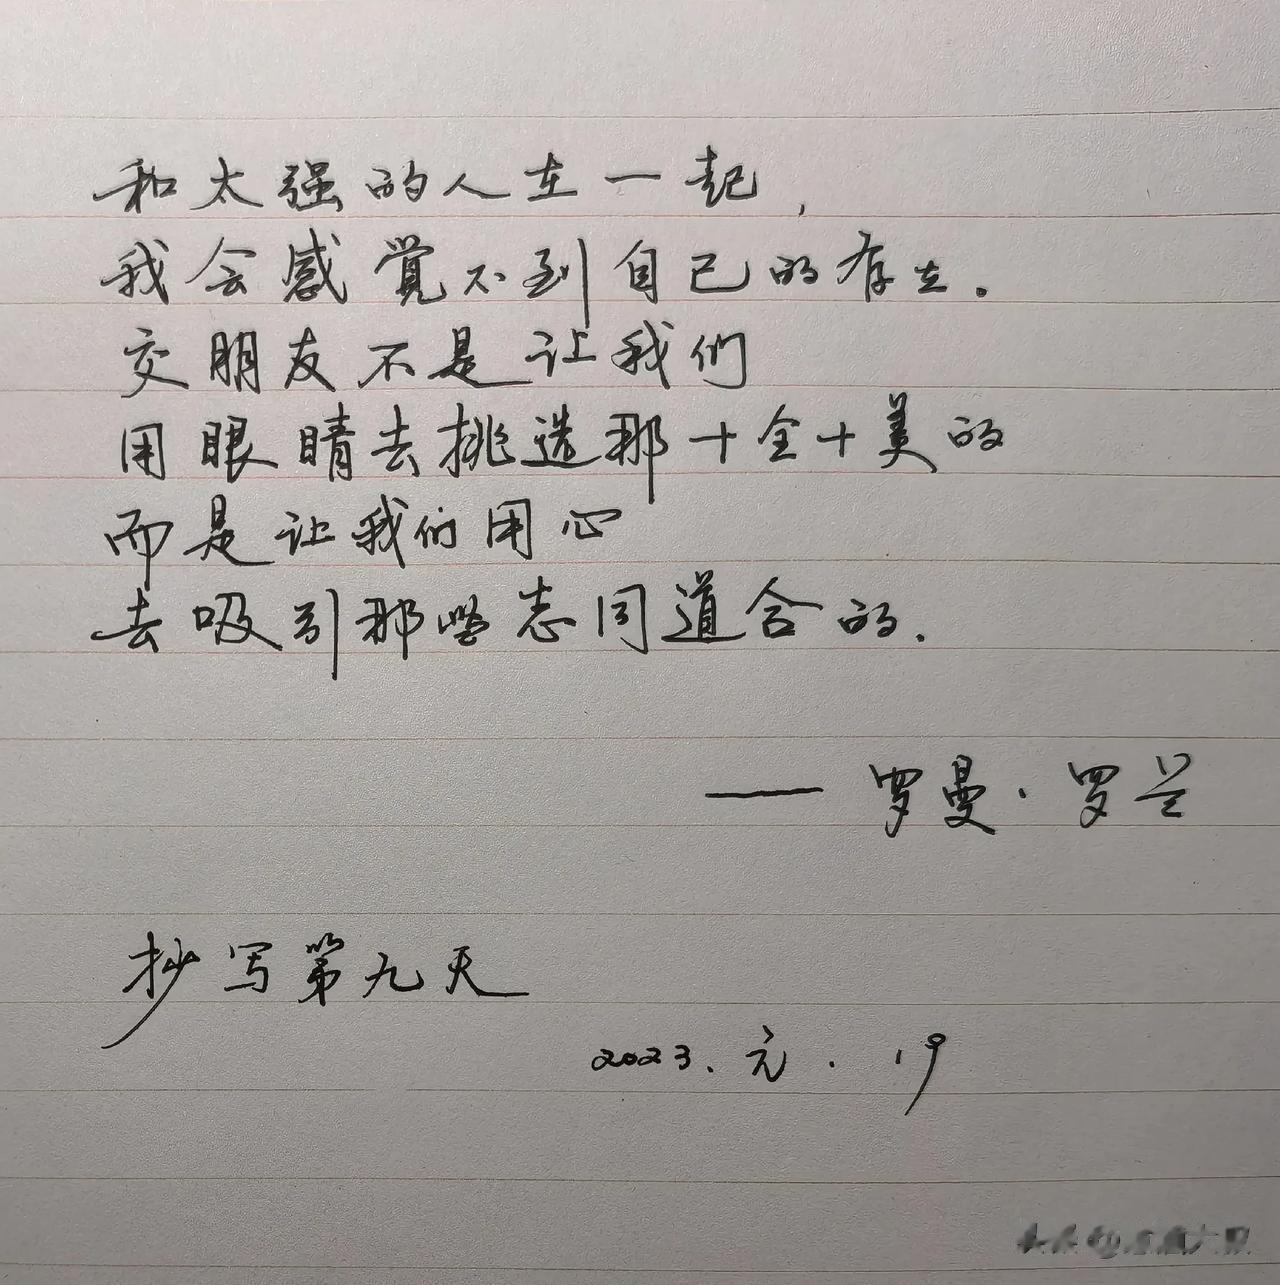 和太强的人在一起，
我会感觉不到自己的存在.
交朋友不是让我们
用眼睛去挑选那十全十美的
而是让我们用心
去吸引那些志同道合的.
—— 罗曼·罗兰
抄写第九天
2023.元.19
头条@